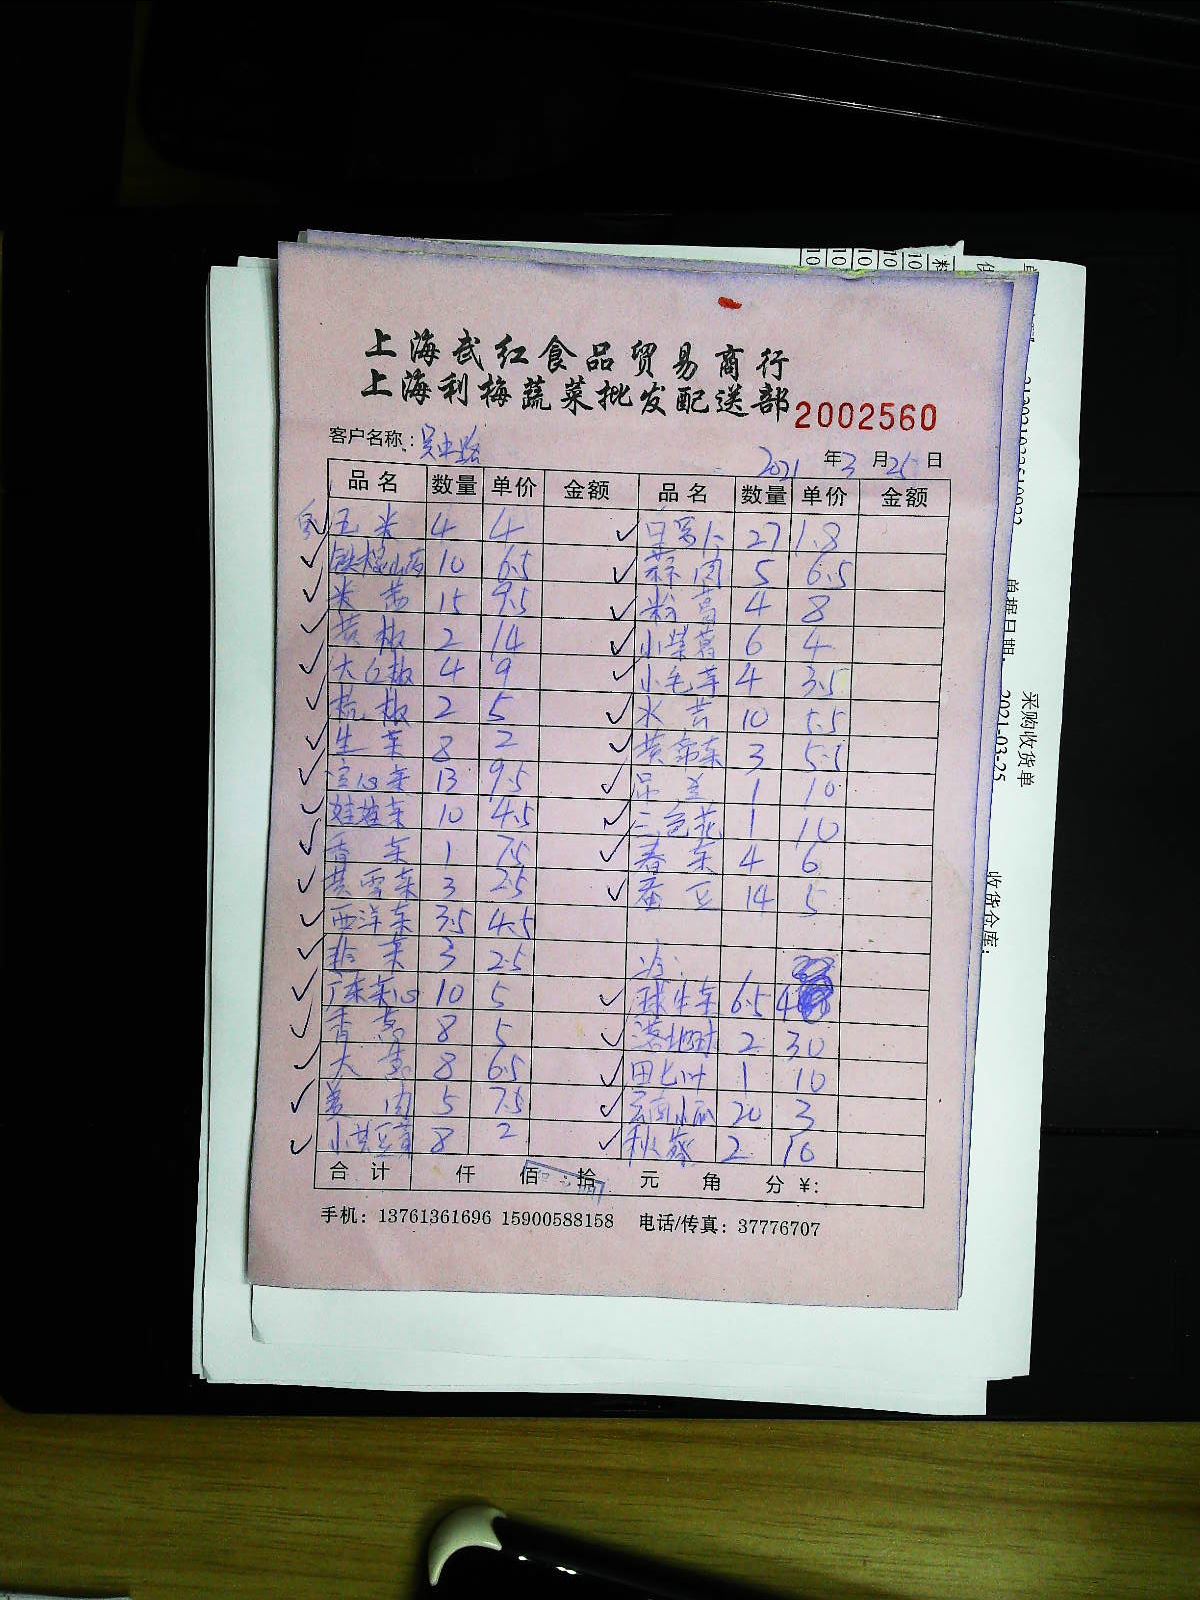 上海武红食品贸易商行
上海利梅蔬菜批发配送部 2002560
客户名称：吴中路 2021年3月25日
品名 数量 单价 金额 品名 数量 单价 金额
玉米 4 4 27 1.8
铁棍山药 10 6.5 蒜肉 5 6.5
米苋 15 9.5 粉葛 4 8
黄椒 2 14 小紫薯 6 4
大红椒 4 9 小毛芋 4 3.5
杭椒 2 5 水芹 10 5.5
生菜 8 2 黄帝菜 3 5.5
空心菜 13 9.5 吊兰 1 10
娃娃菜 10 4.5 三色花 1 10
香菜 1 7.5 春菜 4 6
黄雪菜 3 2.5 蚕豆 14 5
西洋菜 3.5 4.5
韭菜 3 2.5
广东菜心 10 5 球生菜 6.5
香葱 8 5 2 30
大葱 8 6.5 田七叶 1 10
姜肉 5 7.5 云南小瓜 20 3
小黄豆芽 8 2 秋葵 2 10
合计 仟 佰 拾 元 角 分 ¥:
手机：13761361696 15900588158 电话/传真：37776707
采购收货单
单据日期: 2021-03-25
收货仓库: